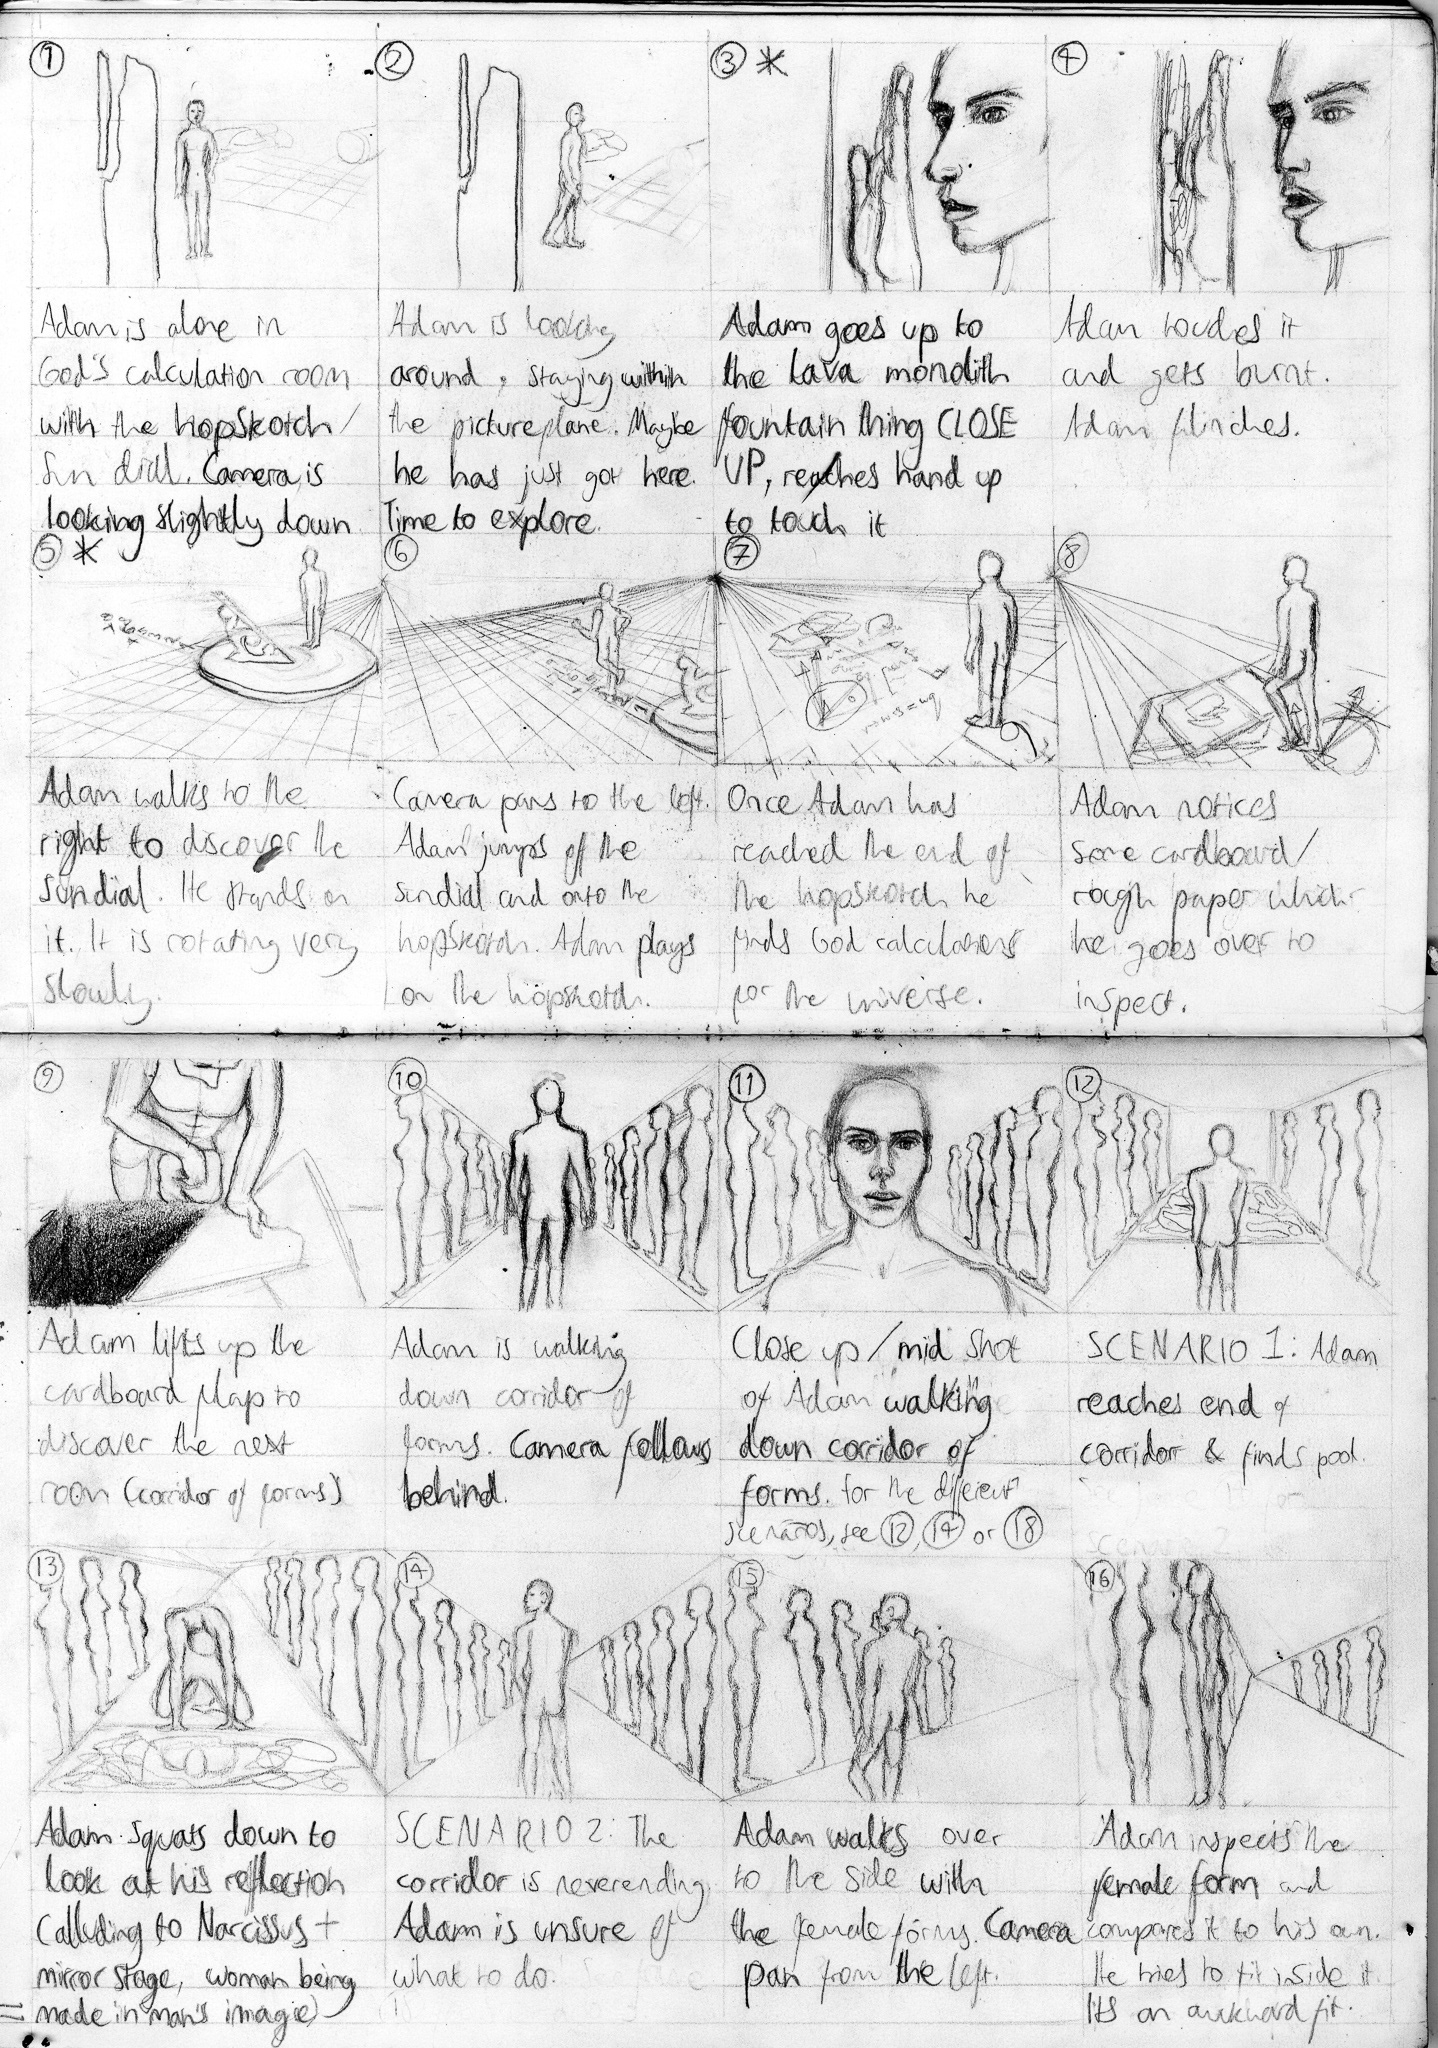 1
Adam is alone in
God's calculation room
with the hopskotch/
Sun dial. Camera is
looking slightly down
2
Adam is looking
around, staying within
the picture plane. Maybe
he has just got here.
Time to explore.
3 *
Adam goes up to
the lava monolith
fountain thing CLOSE
UP, reaches hand up
to touch it
4
Adam touches it
and gets burnt.
Adam flinches.
5 *
Adam walks to the
right to discover the
sundial. He stands on
it. It is rotating very
slowly.
6
Camera pans to the left.
Adam jumps off the
sundial and onto the
hopskotch. Adam plays
on the hopskotch.
7
Once Adam has
reached the end of
the hopskotch he
finds God calculations
for the universe.
8
Adam notices
some cardboard/
rough paper which
he goes over to
inspect.
9
Adam lifts up the
cardboard flap to
discover the next
room (corridor of forms)
10
Adam is walking
down corridor of
forms. Camera follows
behind.
11
Close up/mid shot
of Adam walking
down corridor of
forms. For the different
scenarios, see 12, 14 or 18
12
SCENARIO 1: Adam
reaches end of
corridor & finds pool.
13
Adam squats down to
look at his reflection
(alluding to Narcissus +
mirror stage, woman being
made in man's image)
14
SCENARIO 2: The
corridor is neverending.
Adam is unsure of
what to do.
15
Adam walks over
to the side with
the female forms. Camera
pan from the left.
16
Adam inspects the
female form and
compares it to his own.
He tries to fit inside it.
Its an awkward fit.